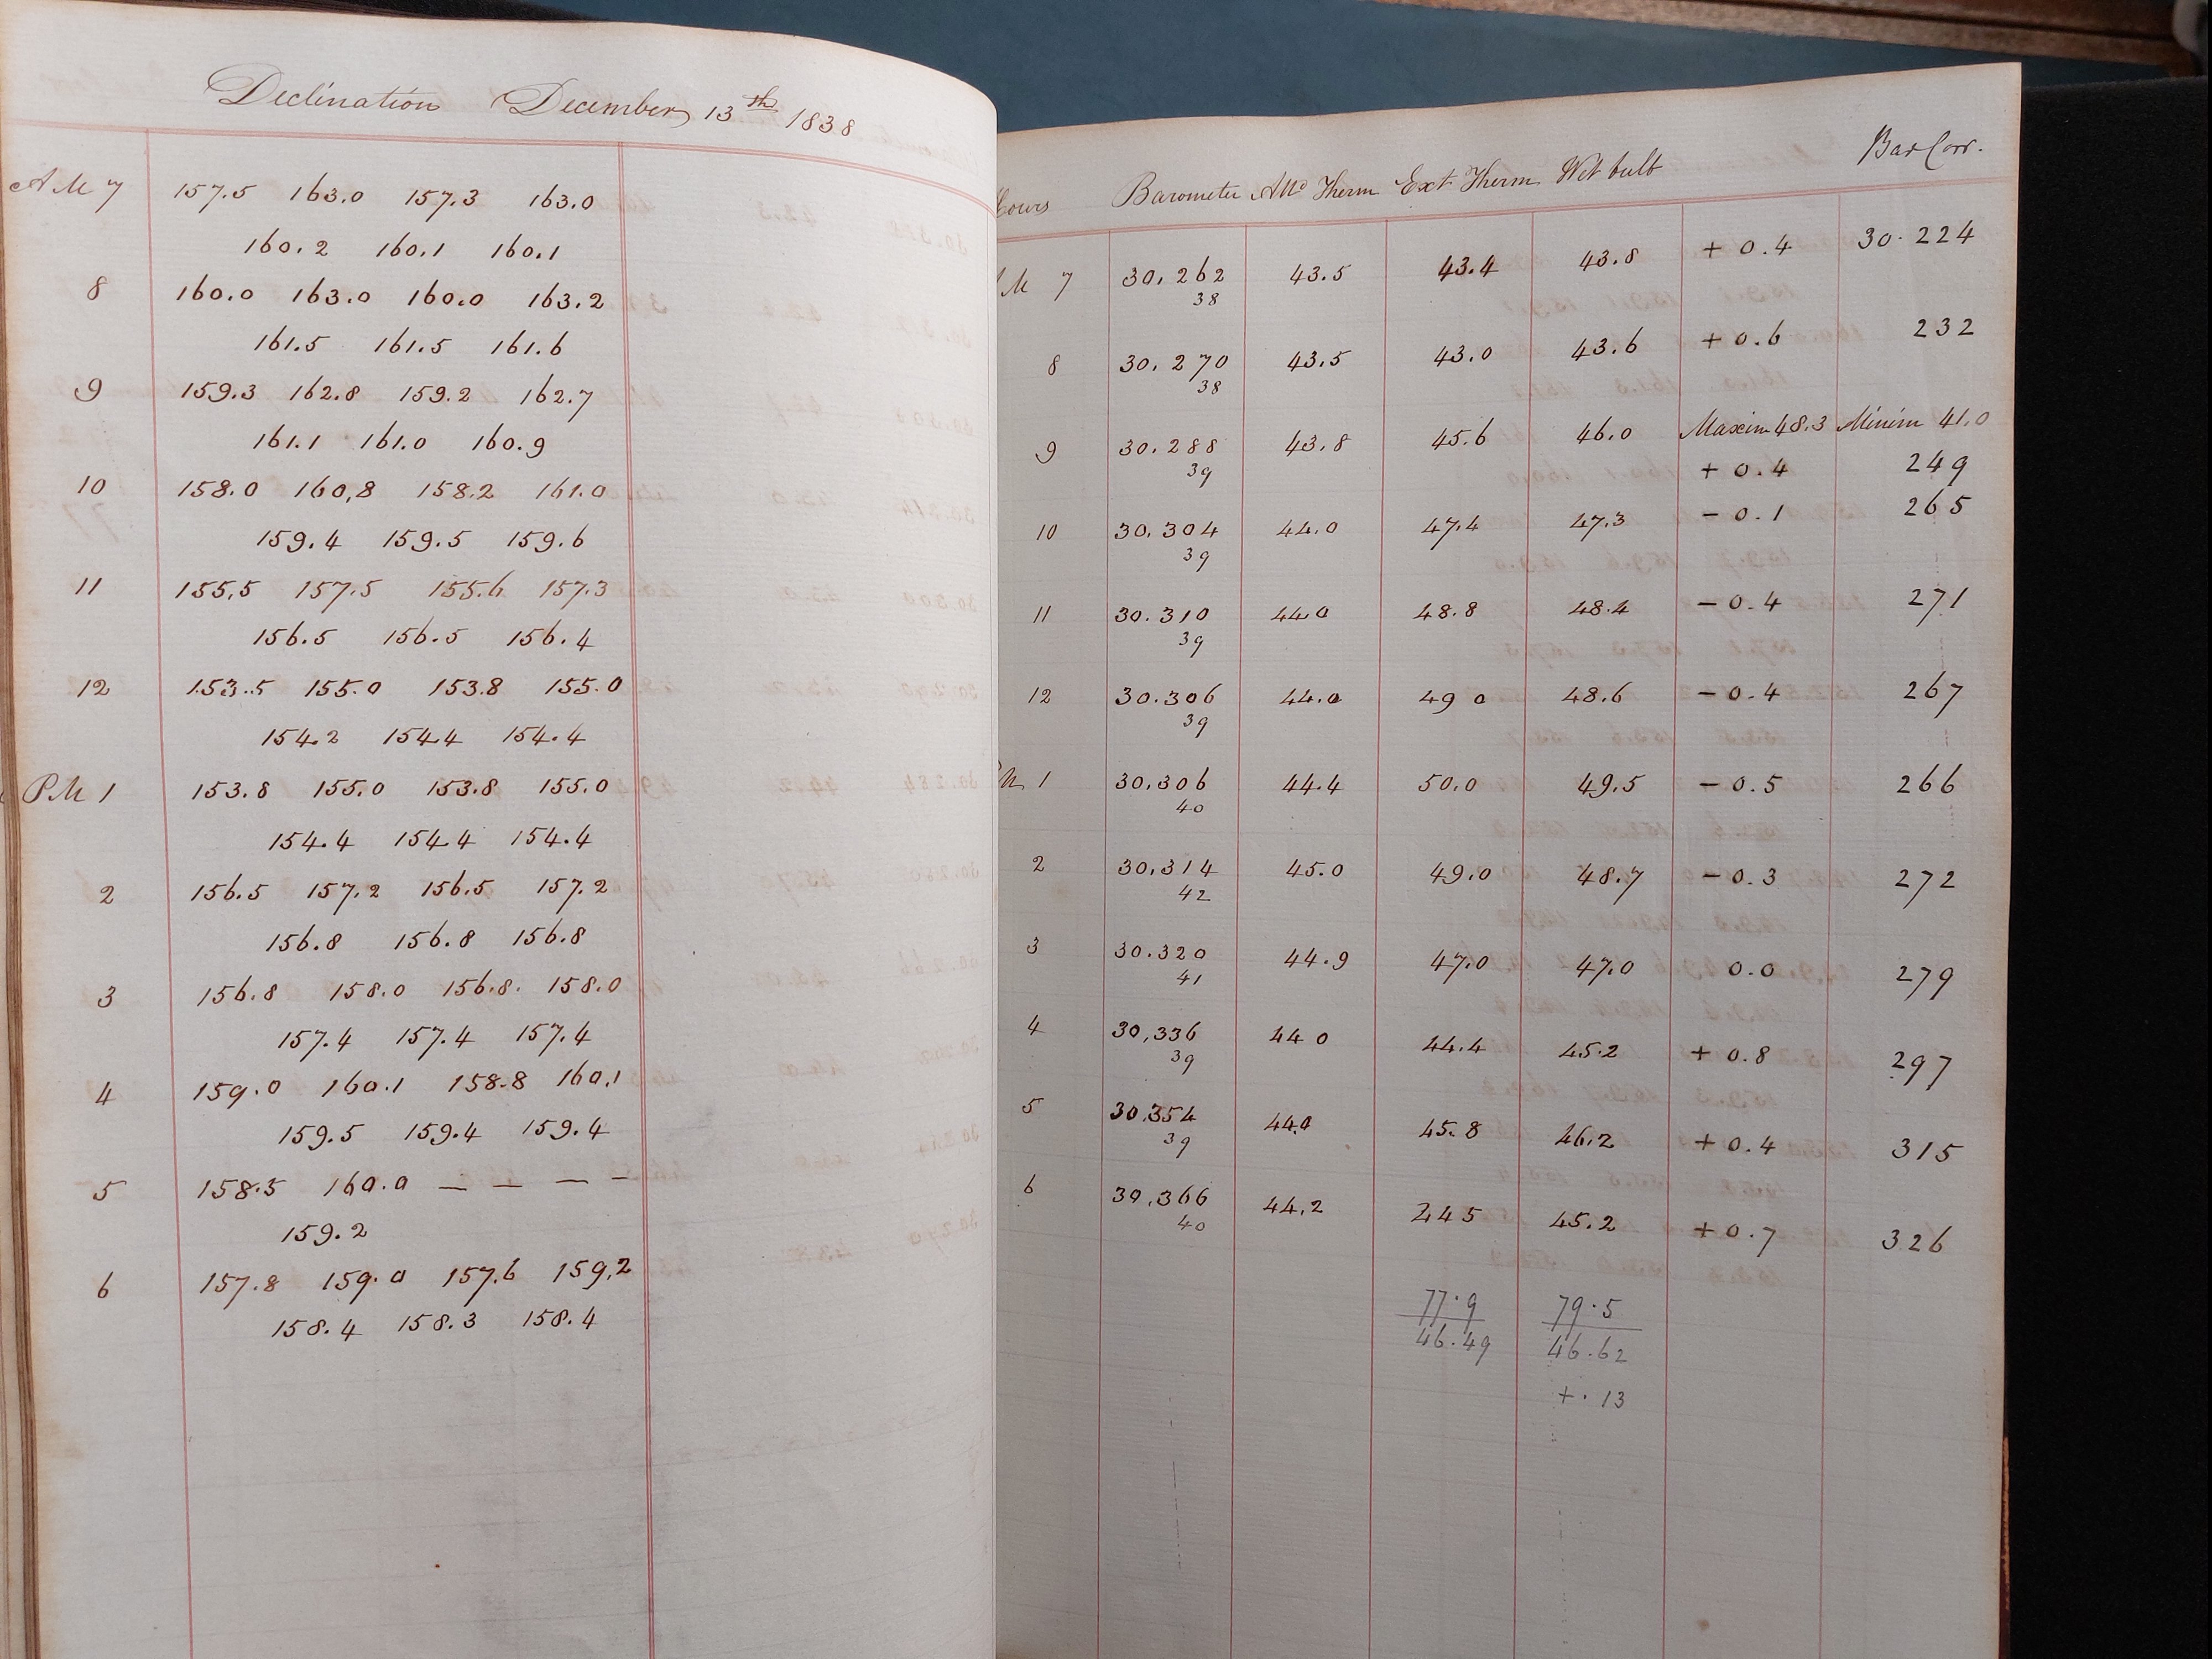 Declination December 13th 1838
AM 7 157.5 163.0 157.3 163.0
160.2 160.1 160.1
8 160.0 163.0 160.0 163.2
161.5 161.5 161.6
9 159.3 162.8 159.2 162.7
161.1 161.0 160.9
10 158.0 160,8 158.2 161.0
159.4 159.5 159.6
11 155,5 157.5 155.6 157.3
156.5 156.5 156.4
12 153.5 155.0 153.8 155.0
154.2 154.4 154.4
P.M 1 153.8 155.0 153.8 155.0
154.4 154.4 154.4
2 156.5 157.2 156.5 157.2
156.8 156.8 156.8
3 156.8 158.0 156.8. 158.0
157.4 157.4 157.4
4 159.0 160.1 158.8 160.1
159.5 159.4 159.4
5 158.5 160.0 — — — —
159.2
6 157.8 159.0 157.6 159,2
158.4 158.3 158.4
Hours Barometer Attd Therm Ext Therm Wet bulb Bar Corr.
M 7 30.262 43.5 43.4 43.8 + 0.4 30.224
38
8 30.270 43.5 43.0 43.6 + 0.6 232
38
Maxim 48.3 Minim 41.0
9 30.288 43.8 45.6 46.0 + 0.4 249
39
10 30.304 44.0 47.4 47.3 - 0.1 265
39
11 30.310 44.0 48.8 48.4 - 0.4 271
39
12 30.306 44.0 49 0 48.6 - 0.4 267
39
M 1 30.306 44.4 50.0 49.5 - 0.5 266
40
2 30,314 45.0 49.0 48.7 - 0.3 272
42
3 30.320 44.9 47.0 47.0 0.0 279
41
4 30,336 44 0 44.4 45.2 + 0.8 297
39
5 30.354 44.0 45.8 46.2 + 0.4 315
39
6 30,366 44.2 44 5 45.2 + 0.7 326
40
77.9 79.5
46.49 46.62
+.13